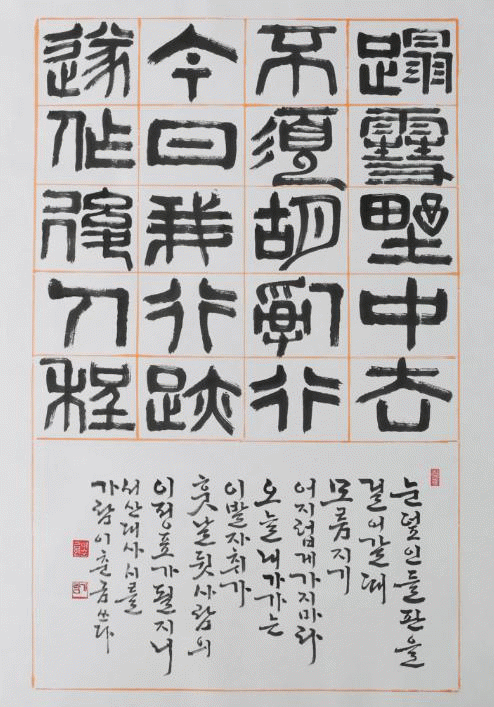 蹋雪野中去
不須胡亂行
今日我行跡
遂作後人程
눈덮인들판을
걸어갈때
모름지기
어지럽게가지마라
오늘내가가는
이발자취가
훗날뒷사람의
이정표가될지니
서산대사시를
가람이춘금쓰다